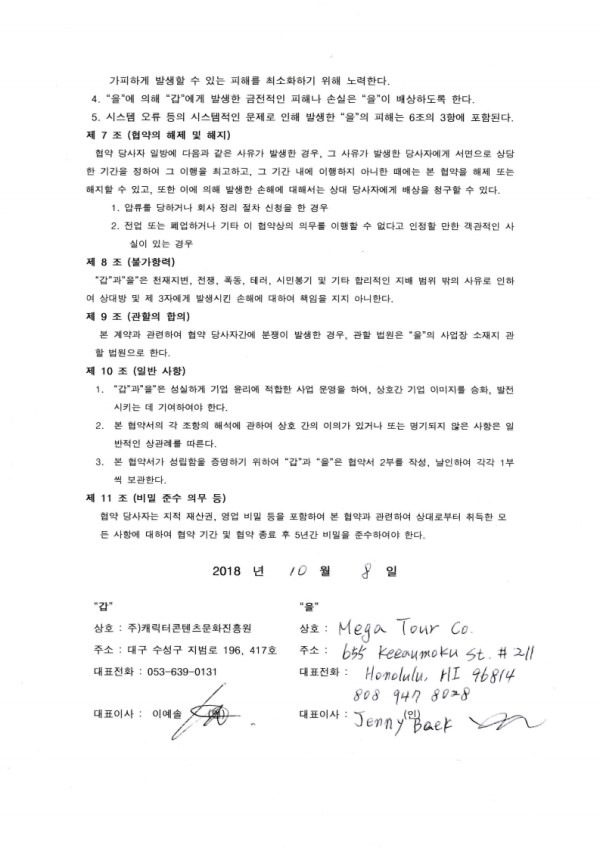 가피하게 발생할 수 있는 피해를 최소화하기 위해 노력한다.
4. "을"에 의해 "갑"에게 발생한 금전적인 피해나 손실은 "을"이 배상하도록 한다.
5. 시스템 오류 등의 시스템적인 문제로 인해 발생한 "을"의 피해는 6조의 3항에 포함된다.
제 7 조 (협약의 해제 및 해지)
협약 당사자 일방에 다음과 같은 사유가 발생한 경우, 그 사유가 발생한 당사자에게 서면으로 상당
한 기간을 정하여 그 이행을 최고하고, 그 기간 내에 이행하지 아니한 때에는 본 협약을 해제 또는
해지할 수 있고, 또한 이에 의해 발생한 손해에 대해서는 상대 당사자에게 배상을 청구할 수 있다.
1. 압류를 당하거나 회사 정리 절차 신청을 한 경우
2. 전업 또는 폐업하거나 기타 이 협약상의 의무를 이행할 수 없다고 인정할 만한 객관적인 사
실이 있는 경우
제 8 조 (불가항력)
"갑"과"을"은 천재지변, 전쟁, 폭동, 테러, 시민봉기 및 기타 합리적인 지배 범위 밖의 사유로 인하
여 상대방 및 제 3자에게 발생시킨 손해에 대하여 책임을 지지 아니한다.
제 9 조 (관할의 합의)
본 계약과 관련하여 협약 당사자간에 분쟁이 발생한 경우, 관할 법원은 "을"의 사업장 소재지 관
할 법원으로 한다.
제 10 조 (일반 사항)
1. "갑"과"을"은 성실하게 기업 윤리에 적합한 사업 운영을 하여, 상호간 기업 이미지를 승화, 발전
시키는 데 기여하여야 한다.
2. 본 협약서의 각 조항의 해석에 관하여 상호 간의 이의가 있거나 또는 명기되지 않은 사항은 일
반적인 상관례를 따른다.
3. 본 협약서가 성립함을 증명하기 위하여 "갑"과 "을"은 협약서 2부를 작성, 날인하여 각각 1부
씩 보관한다.
제 11 조 (비밀 준수 의무 등)
협약 당사자는 지적 재산권, 영업 비밀 등을 포함하여 본 협약과 관련하여 상대로부터 취득한 모
든 사항에 대하여 협약 기간 및 협약 종료 후 5년간 비밀을 준수하여야 한다.
2018 년 10 월 8 일
"갑" "을"
상호 : 주)캐릭터콘텐츠문화진흥원 상호 : Mega Tour Co.
주소 : 대구 수성구 지범로 196, 417호 주소 : 655 Keeaumoku St. # 211
대표전화 : 053-639-0131 대표전화 : Honolulu, HI 96814
808 947 8028
대표이사 : 이예솔 대표이사 : Jenny (인) Baek